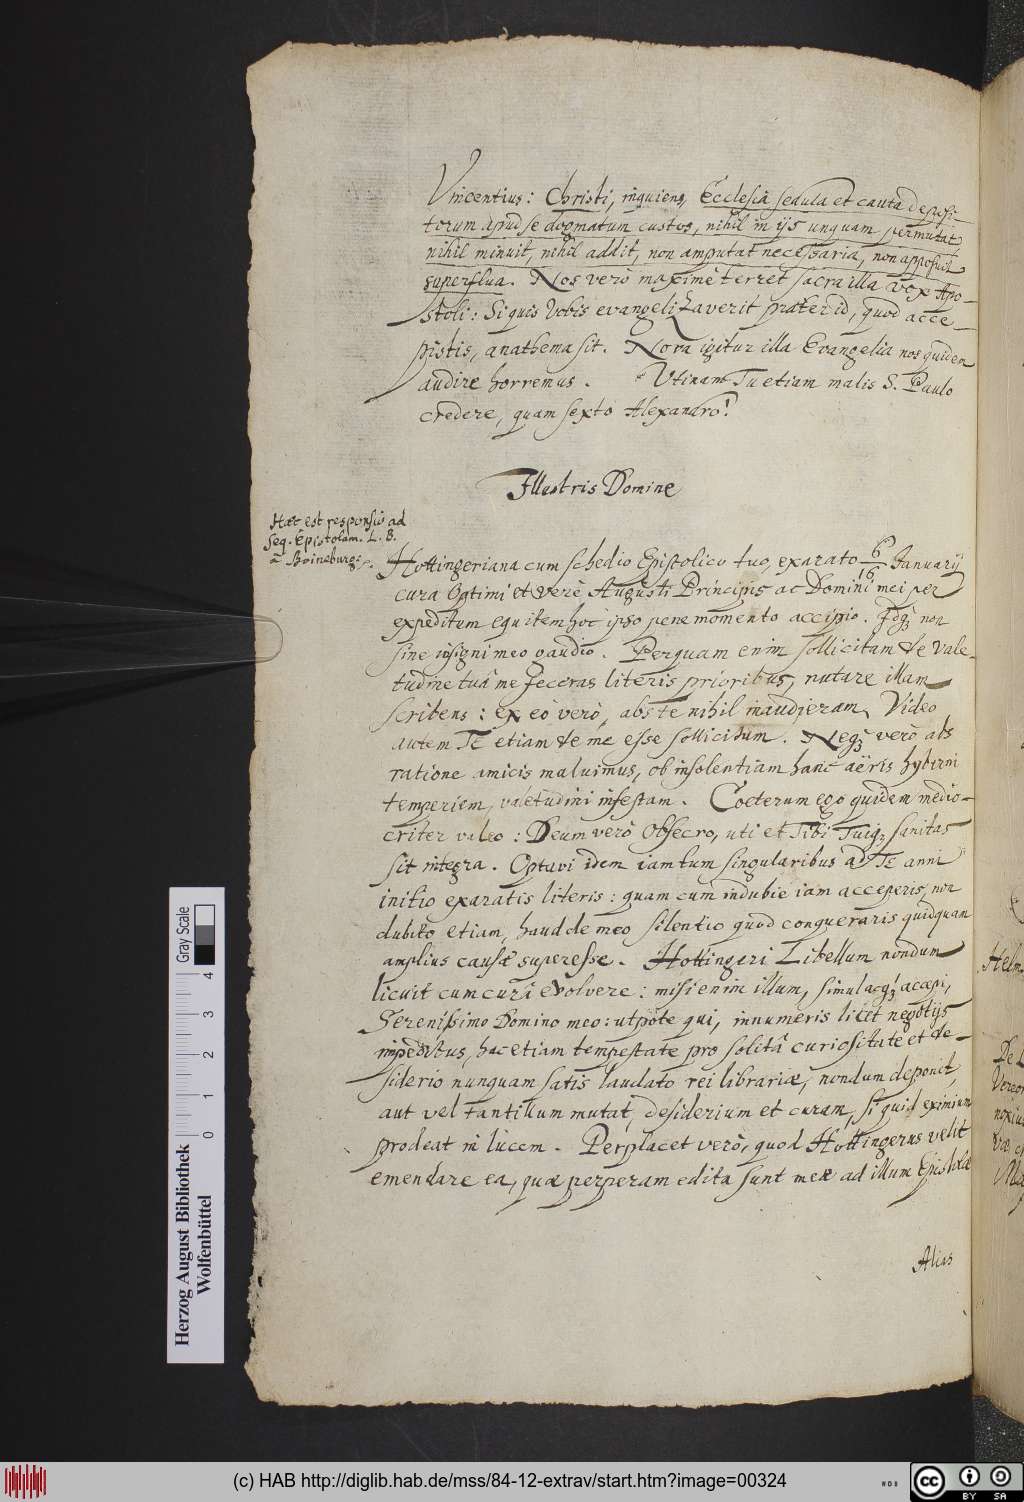 Vincentius: Christi, inquiens, Ecclesia sedula et cauta deposi-
torum apud se dogmatum custos, nihil in ijs unquam permutat
nihil minuit, nihil addit, non amputat necessaria, non apposuit
superflua. Nos verò maximè terret sacra illa vox Apo-
stoli: Si quis Vobis evangelizaverit præter id, quod acce-
pistis, anathema sit. Nova igitur illa Evangelia nos quidem
audire horremus. Utinam Tu etiam malis S. Paulo
credere, quam sexto Alexandro!
Illustris Domine
Hæc est responsio ad
seq. Epistolam. L. B.
à Boineburg:
Hottingeriana cum schedio Epistolico tuo, exarato 6/16 Januarij
cura Optimi et verè Augusti Principis ac Domini mei per
expeditum equitem hoc ipso pene momento accipio. Idq; non
sine insigni meo gaudio. Perquam enim sollicitam de Vale-
tudine tuâ me feceras literis prioribus, nutare illam
scribens: ex eò verò, abs te nihil inaudieram. Video
autem Te etiam de me esse sollicitum. Neq; verò abs
ratione amicis maluimus, ob insolentiam hanc aëris hyberni
temperiem, valetudini infestam. Coeterum ego quidem medio-
criter valeo: Deum verò Obsecro, uti et Tibi Tuiq; sanitas
sit integra. Optavi idem iam tum singularibus ad Te anni
initio exaratis literis: quam cum indubie iam acceperis, non
dubito etiam, haud de meo silentio quod conqueraris quidquam
amplius causæ superesse. Hottingeri Libellum nondum
licuit cum curâ evolvere: misi enim illum, simulacq; accepi,
Serenissimo Domino meo: utpote qui, innumeris licit negotijs
impeditus, hac etiam tempestate pro solitâ curiositate et de-
siderio nunquam satis laudato rei librariæ, nondum deponit,
aut vel tantillum mutat, desiderium et curam, si quid eximium
prodeat in lucem. Perplacet verò, quod Hottingerus velit
emendare ea, quæ perperam edita sunt meæ ad illum Epistolæ
Alias
Herzog August Bibliothek
Wolfenbüttel
0 1 2 3 4
Gray Scale
(c) HAB http://diglib.hab.de/mss/84-12-extrav/start.htm?image=00324
cc BY SA